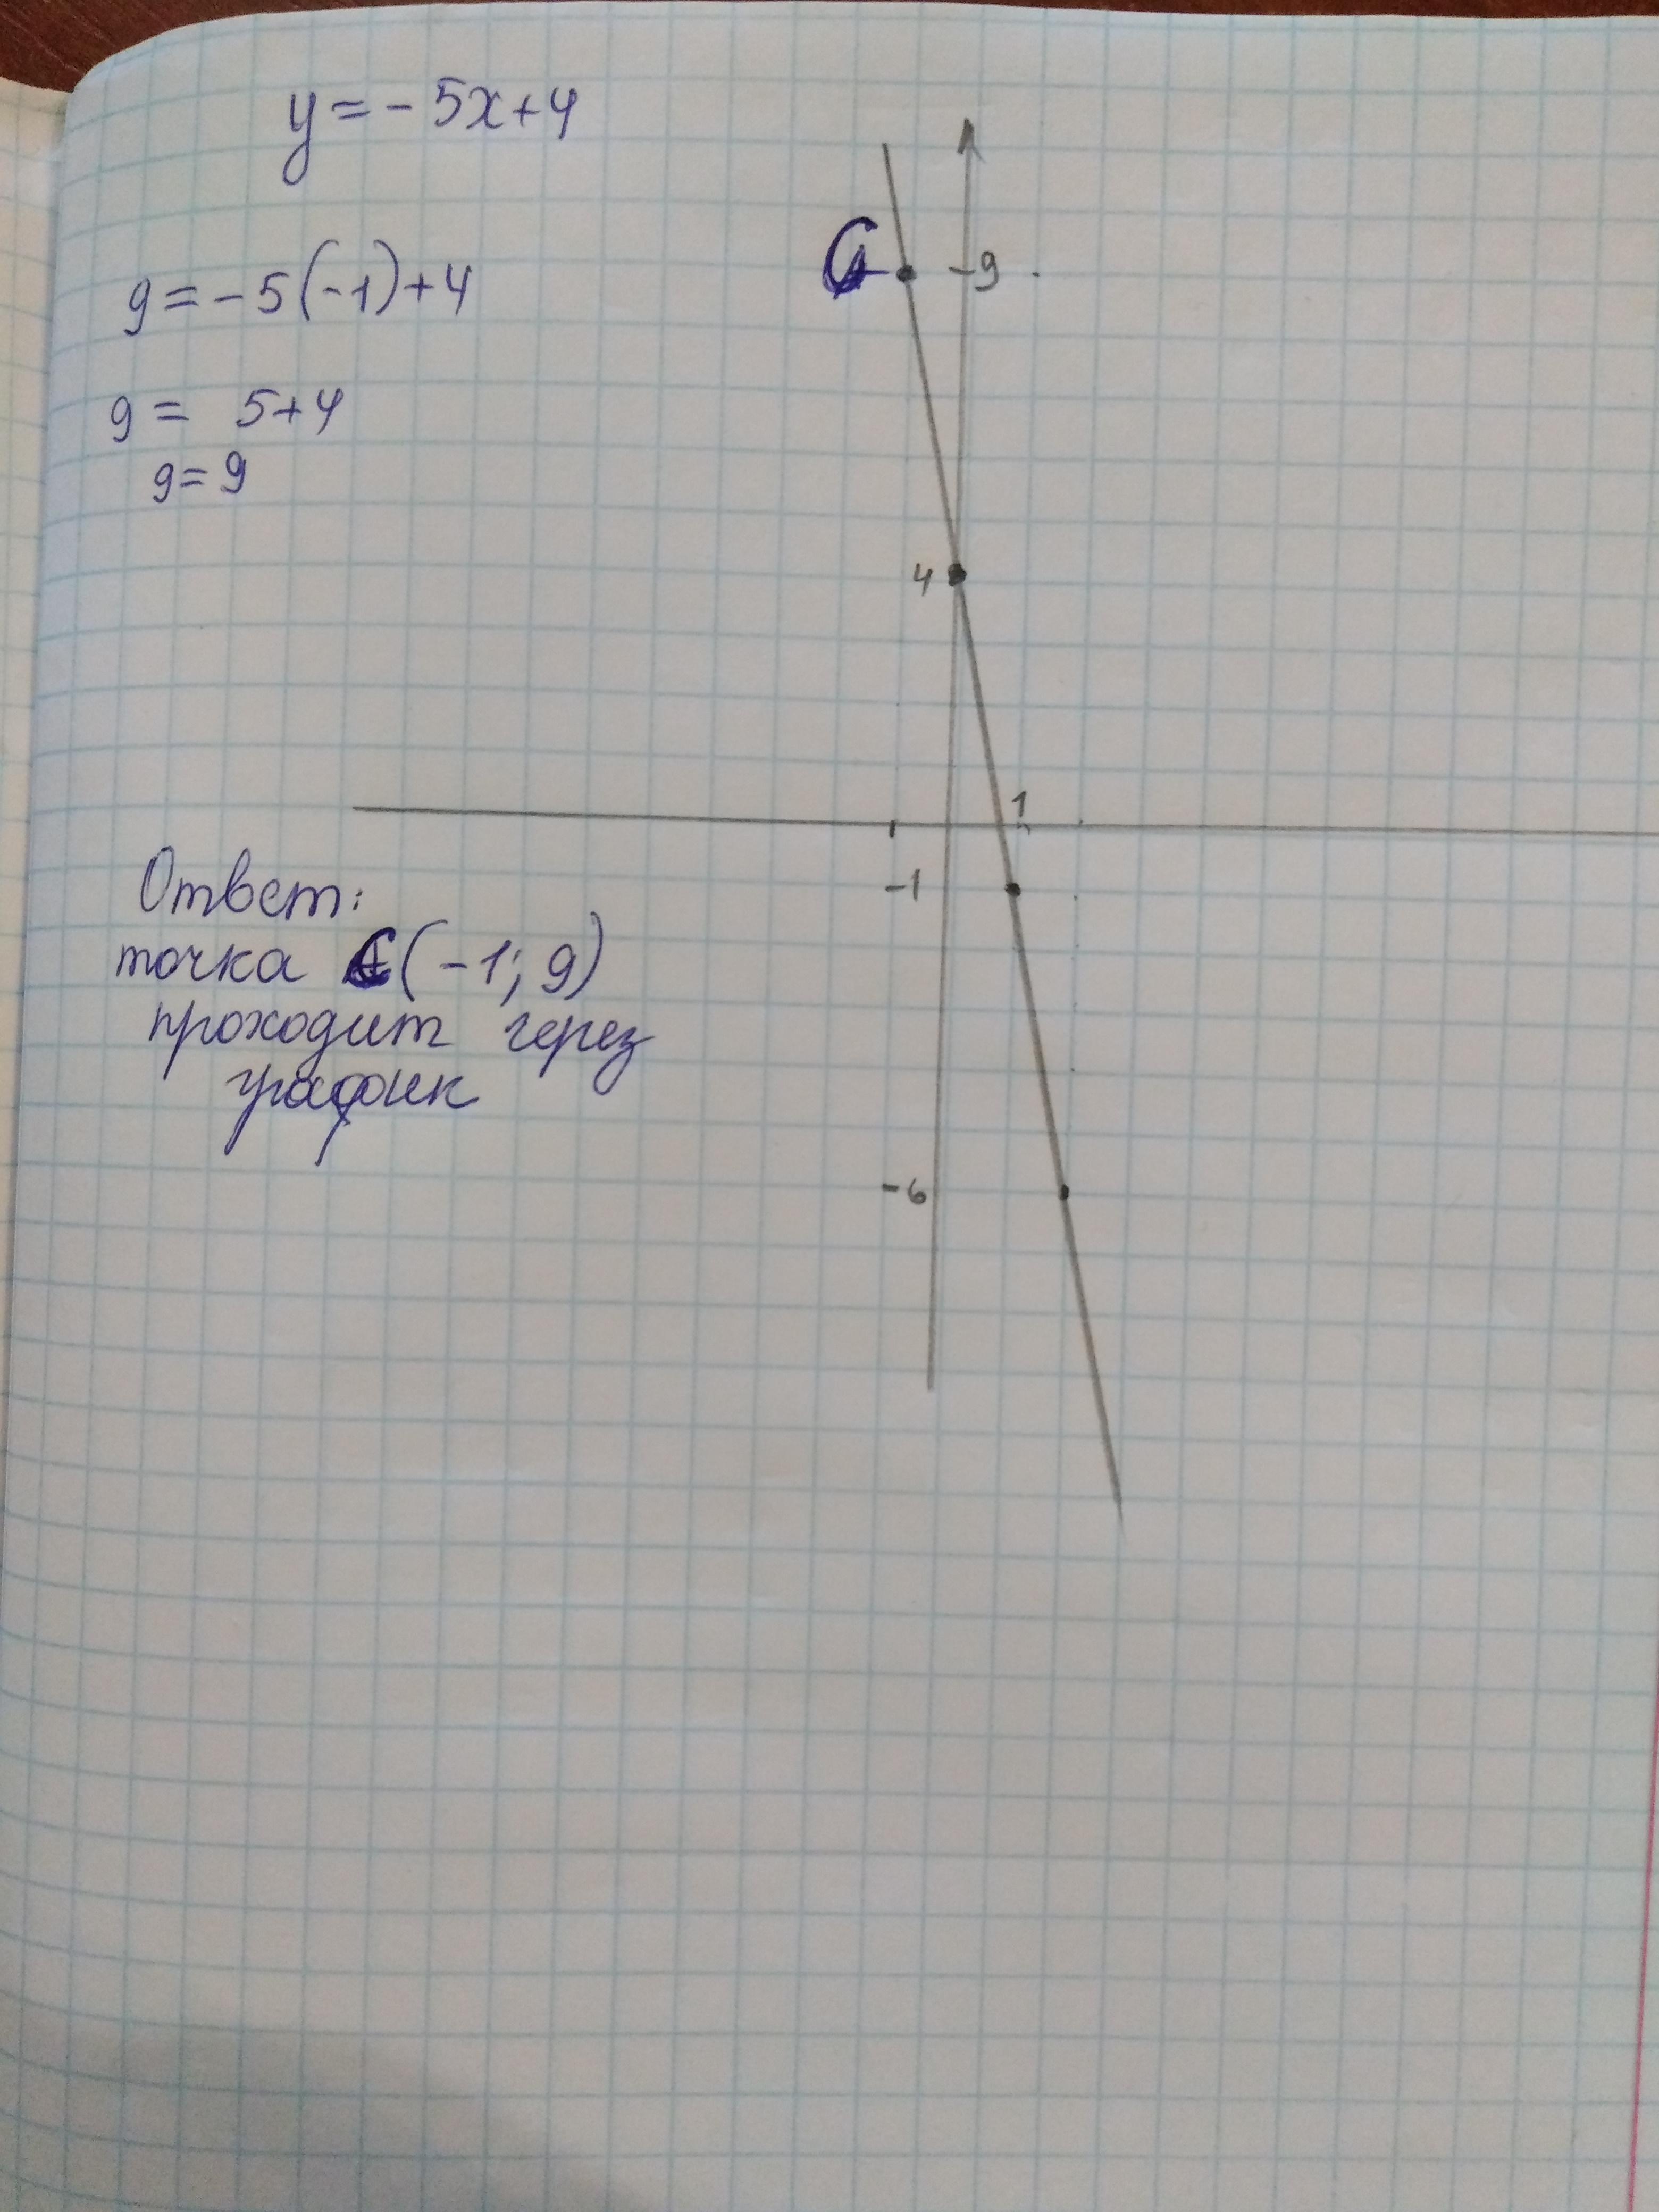 y = - 5x + 4
9 = - 5 (-1) + 4
9 = 5 + 4
9 = 9
C
- 9
4
1
-1
-6
Ответ:
точка C (-1; 9)
проходит через
график